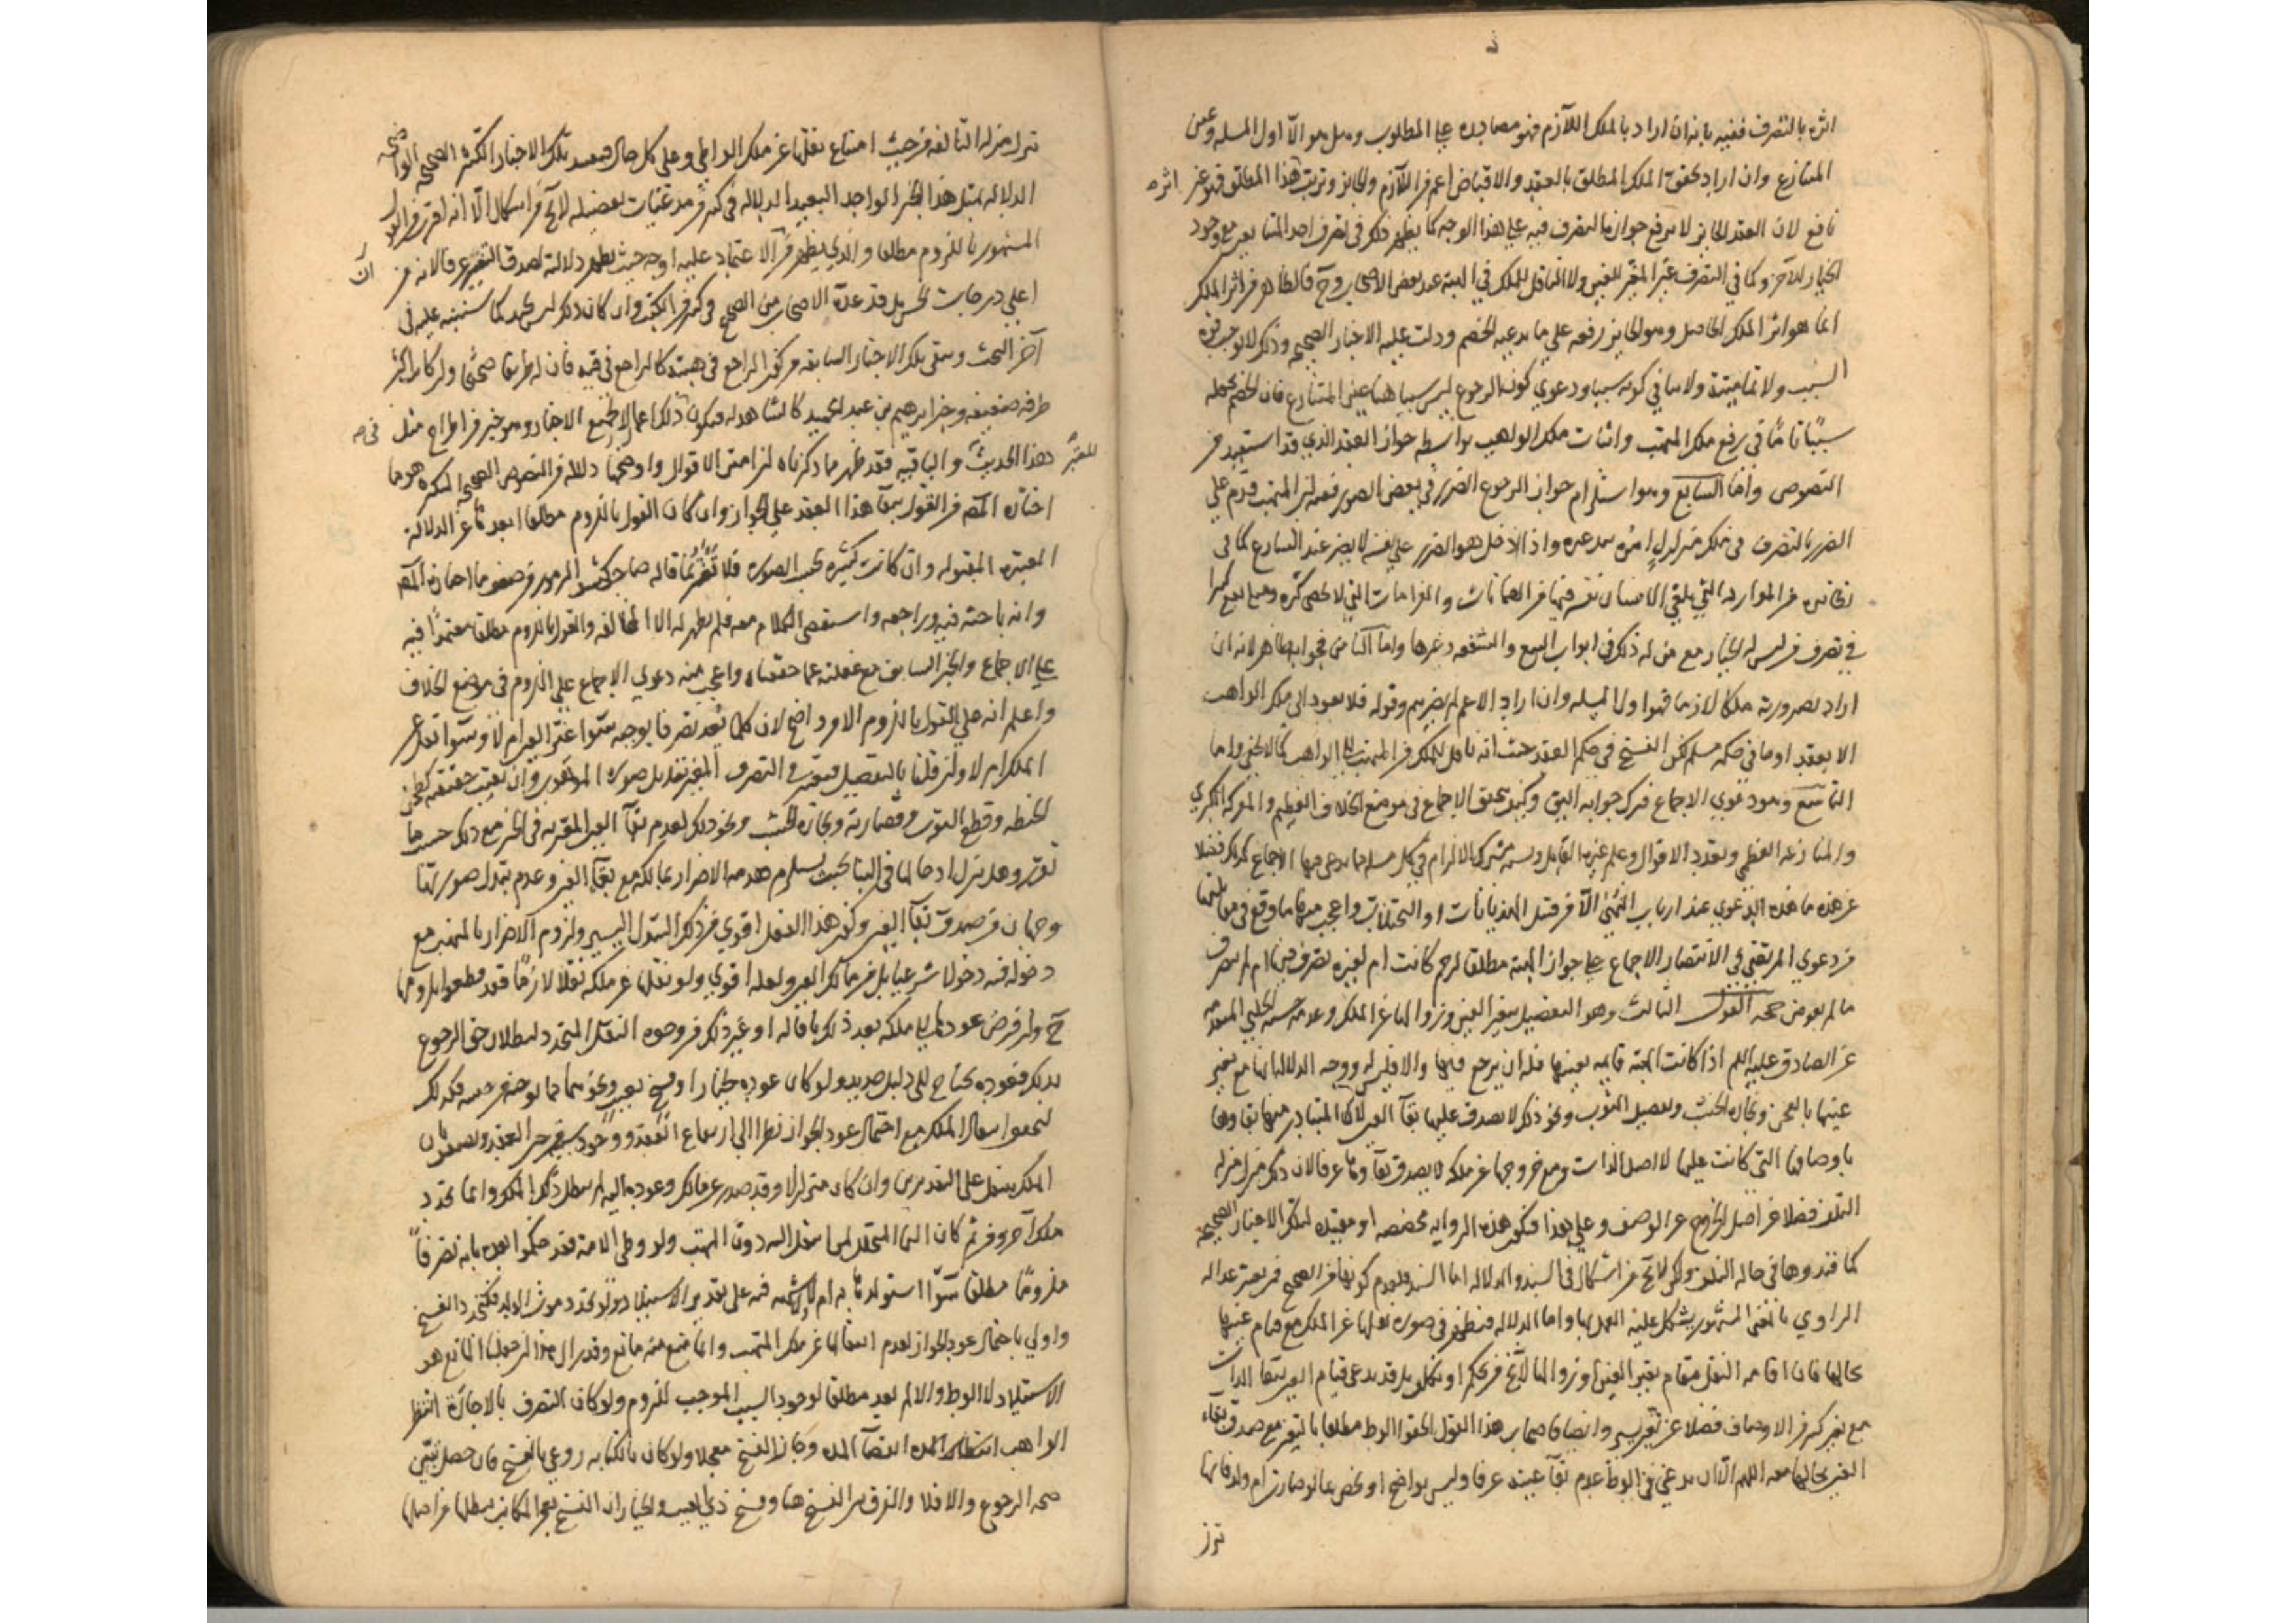 اثره بالتصرف ففيه بانه ان اراد بالملك اللازم فهو مصادره على المطلوب وهل هو الا اول المسله وعين
المتنازع وان اراد تحقق الملك المطلق بالعقد والاقباض اعم من اللازم والجايز وترتب هذا المطلق فهو غير اثره
نافع لان العقد الجايز لا يرفع جوازه التصرف فيه على هذا الوجه كما يظهر ذلك في تصرف احد المتبايعين مع وجود
الخيار للآخر وكما في التصرف غير المغير للعين ولا الناقل للملك في الهبة عند بعض الاصحاب وح فالظاهر من اثر الملك
انما هو اثر الملك الحاصل وهو الجايز رفعه على ما يدعيه الخصم ودلت عليه الاخبار الصحيحه وذلك لا يوجب
السبب ولا تماميته ولا ينافي كونه سببا ودعوى كون الرجوع ليس سببا هنا عين المتنازع فان الخصم يجعله
سببا تاما في رفع ملك المتهب واثبات ملك الواهب بواسطه جواز العقد الذي قد استفيد من
النصوص واما السابع وهو استلزام جواز الرجوع الضرر في بعض الصور ففيه ان المتهب قدم على
الضرر بالتصرف في ملك متزلزل امره بيد غيره واذا ادخل هو الضرر على نفسه لا يضر عند الشارع كما في
نظائره من الموارد التي يلقي الانسان نفسه فيها من الضمانات والغرامات التي لا تحصى كثره ومما يقع كثيرا
في تصرف من ليس له الخيار مع من له ذلك في ابواب البيع والشفعه وغيرها واما الثامن فجوابه ظاهر لانه ان
اراد بصيرورته ملكا لازما فهو اول المسله وان اراد الاعم لم يضرهم وقوله فلا يعود الى ملك الواهب
الا بعقد او ما في حكمه مسلم لكن الفسخ في حكم العقد حيث انه ناقل للملك من المتهب الى الواهب كما لا يخفى واما
التاسع وهو دعوى الاجماع فترك جوابه اليق وكيف يتحقق الاجماع في موضع الخلاف العظيم والمعركه الكبرى
والمنازعه العظمى وتعدد الاقوال وعلم غير القايل ونسبه مشترك الالزام في كل مسله يدعى فيها الاجماع كذلك فضلا
عن هذه ما هذه الدعوى عند ارباب النهى الا من قبيل الهذيانات او التخيلات واعجب منها ما وقع في مقابلتها
من دعوى المرتضى في الانتصار الاجماع على جواز الهبة مطلقا لرحم كانت ام لغيره تصرف فيها ام لم يتصرف
ما لم يعوض حجه القول الثالث وهو التفصيل بتغير العين وزوالها عن الملك وعدمه حسنه الحلبي المتقدمه
عن الصادق عليه السلم اذا كانت الهبة قايمه بعينها فله ان يرجع فيها والا فليس له ووجه الدلاله انها مع تغير
عينها بالطحن ونجاره الخشب وتفصيل الثوب ونحو ذلك لا يصدق عليها بقآ العين لان المتبادر منها بقاؤها
باوصافها التي كانت عليها لا اصل الذات ومع خروجها عن ملكه لا يصدق بقآؤها عرفا لان ذلك منزل منزله
التلف فضلا عن اصل الخروج عن الوصف وعلى هذا فتكون هذه الروايه مخصصه او مقيده لتلك الاخبار الصحيحه
كما قيدوها في حاله التلف ولكن لا تخ من اشكال في السند والدلاله اما السند فلعدم كونها من الصحيح فمن يعتبر عداله
الراوي بالمعنى المشهور يشكل عليه العمل بها واما الدلاله فينظر في صوره نقلها عن الملك مع قيام عينها
بحالها فان اقامه النقل مقام تغير العين او زوالها لا تخ من تحكم او تكلف بل قد يدعى قيام العين بقآ الذات
مع تغير كثير من الاوصاف فضلا عن تغير يسير وايضا فان صاحب هذا القول الحقوا الوط مطلقا بالتغير مع صدق بقآء
العين بحالها معه اللهم الا ان يدعى في الوط عدم بقآ عينه عرفا وليس بواضح او يخص بما لو صارت ام ولد فانها
تنزل
تنزل منزله التالفه من حيث امتناع نقلها عن ملك الواطي وعلى كل حال فتقييد تلك الاخبار الكثيره الصحيحه الواضحه
الدلاله بمثل هذا الخبر الواحد البعيد الدلاله في كثير من مدعيات تفصيله لا تخ من اشكال الا انه اقرب من القول
المشهور باللزوم مطلقا والذي يظهر من الاعتماد عليه اوجه حيث يظهر دلالته لصدق التغيير عرفا لانه من ان
اعلى درجات الحسن بل قد عده الاصحاب من الصحيح في كثير من الكتب وان كان ذلك ليس بجيد كما سننبه عليه في
آخر البحث وتبقى تلك الاخبار السابقه من كون الراجع في هبته كالراجع في قيئه فان له طريقا صحيحا وان كان اكثر
طرقه ضعيفه وخبر ابرهيم بن عبد الحميد كالشاهد له فيكون ذلك اعمالا لجميع الاخبار وهو خير من اطراح مثل في
هذا الحديث المعتبر والباقيه فقد ظهر مما ذكرناه ان امتن الاقوال واوضحها دلاله من النصوص الصحيحه المتكثره هو ما
اختاره المصر من القول ببقآ هذا العقد على الجواز وان كان القول باللزوم مطلقا ابعدها عن الدلاله
المعتبره المقبوله وان كانت كثيره بحسب الصوره فلا تغتر بما قاله صاحب كشف الرموز من ضعف ما اختاره المصر
وانه باحثه فيه وراجعه واستقصى الكلام معه فلم يظهر له الا المخالفه والقول باللزوم مطلقا معتمدا فيه
على الاجماع والخبر السابق مع غفلته عما حققناه واعجب منه دعوى الاجماع على اللزوم في موضع الخلاف
واعلم انه على القول باللزوم الامر واضح لان كلما يعد تصرفا يوجبه سوآ غير العين ام لا وسوآ نقل عن
الملك ام لا وان قلنا بالتفصيل فيعتبر في التصرف المغير تبديل صوره الموهوب وان بقيت حقيقته كطحن
الحنطه وقطع الثوب وقصارته ونجاره الخشب ونحو ذلك لعدم بقآ العين المعتبره في الخبر مع ذلك حسب ما
تقرر وهل يتنزل ادخالها في البنا بحيث يستلزم هدمه الاضرار بمالكه مع بقآ العين وعدم تبدل صورتها
وجهان من صدق بقآ العين وكون هذا الفعل اقوى من ذلك التبدل اليسير ولزوم الاضرار بالمتهب مع
دخوله فيه دخولا شرعيا بل من مالك العين ولعله اقوى ولو نقلها عن ملكه نقلا لازما فقد قطعوا بلزومها
ح ولو فرض عودها الى ملكه بعد ذلك باقاله او غير ذلك من وجوه النقل المتجدد لبطلان حق الرجوع
بذلك فعوده يحتاج الى دليل جديد ولو كان عوده بخيار او فسخ بعيب ونحوهما مما لو ضعف فيه فكذلك
لتحقق انتقال الملك مع احتمال عود الجواز نظرا الى ارتفاع العقد ووجود سبب الفسخ من حين العقد ويضعف بان
الملك ينتقل على التقديرين وان كان متزلزلا وقد صدر عن المالك وعوده اليه لم يبطل ذلك الملك وانما تجدد
ملك آخر ومن ثم كان النما المتخلل لمن انتقل اليه دون المتهب ولو وطى الامة فقد حكموا بعده بانه تصرفا
ملزوما مطلقا سوآ استولدها به ام لا ويشبه فيه على تقدير الاستيلاد ولو تجدد موت الولد فيتجدد الفسخ
واولى باحتمال عود الجواز لعدم انتقالها عن ملك المتهب وانما منع منه مانع وقد زال هذا ان جعلنا المانع هو
الاستيلاد لا الوط والا لم يعد مطلقا لوجود السبب الموجب للزوم ولو كان التصرف بالاجارة انتظر
الواهب انقضآ المده وجاز الفسخ معجلا ولو كان بالكتابه روعي بالفسخ فان حصل تبين
صحه الرجوع والا فلا والفرق بين الفسخ هنا وفسخ ذي العيب والخيار ان الفسخ بعد المكاتبه يبطلها من اصلها